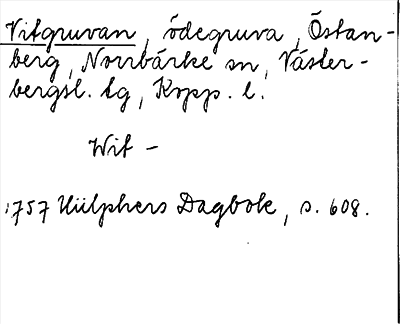 Vitgruvan, ödegruva, Östan-
berg, Norrbärke sn, Väster-
bergsl. tg, Kopp. l.
Wit -
1757 Hülphers Dagbok, s. 608.